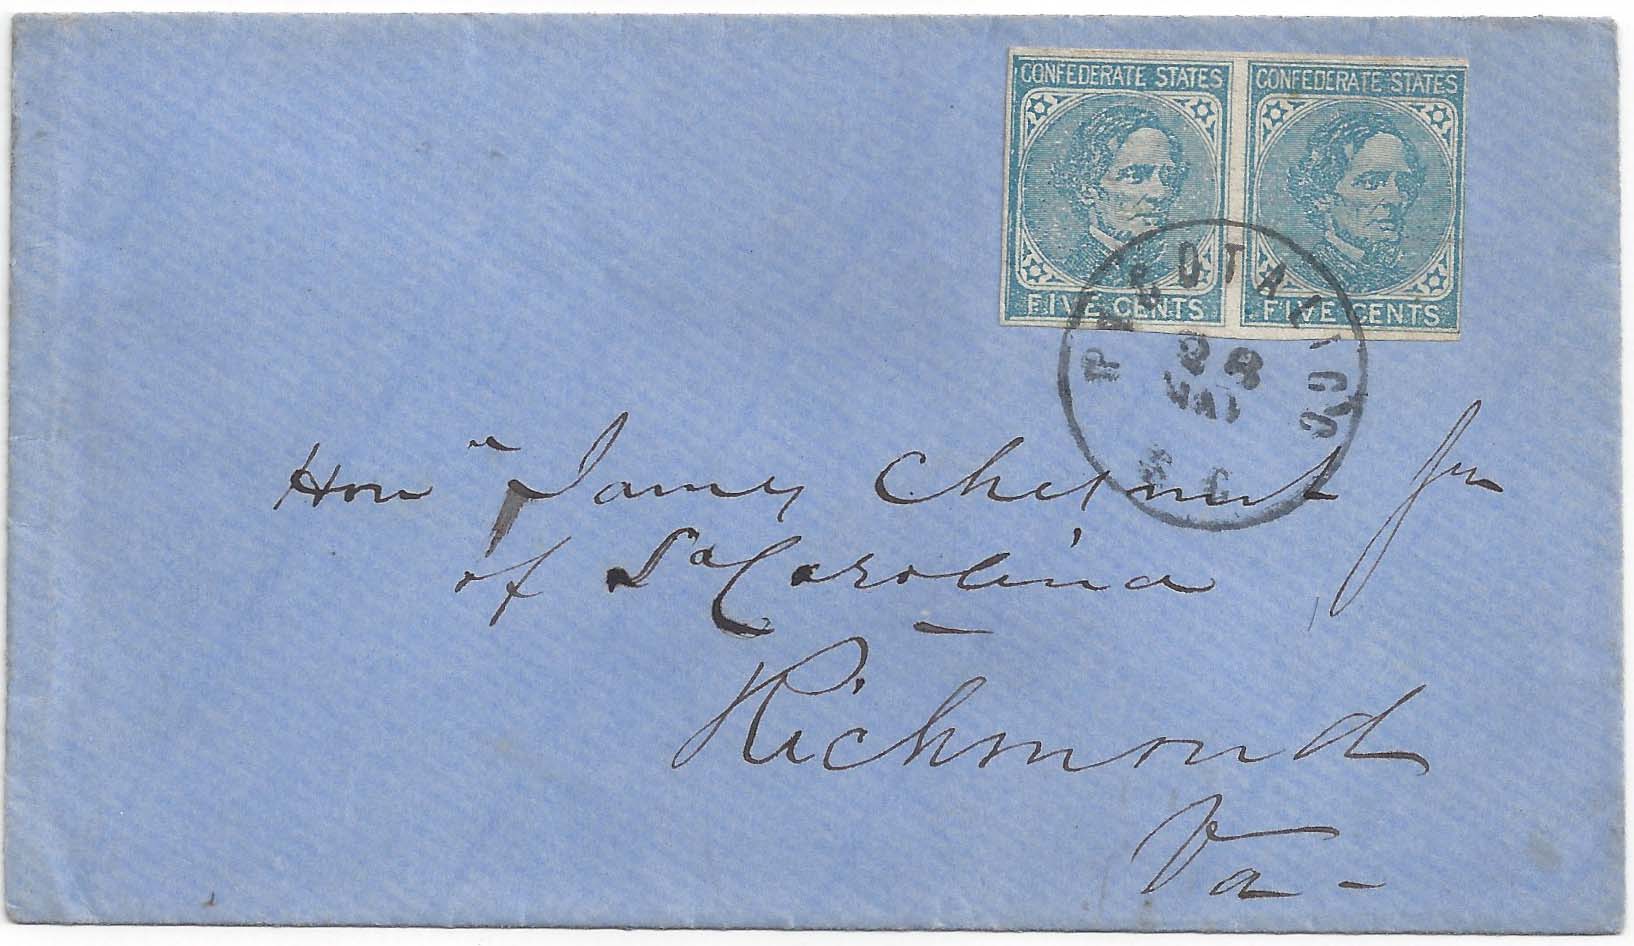 CONFEDERATE STATES
FIVE CENTS
CONFEDERATE STATES
FIVE CENTS
POCOTALIGO
28
MAY
S.C.
Hon James Chesnut Jun
of So Carolina
Richmond
Va-